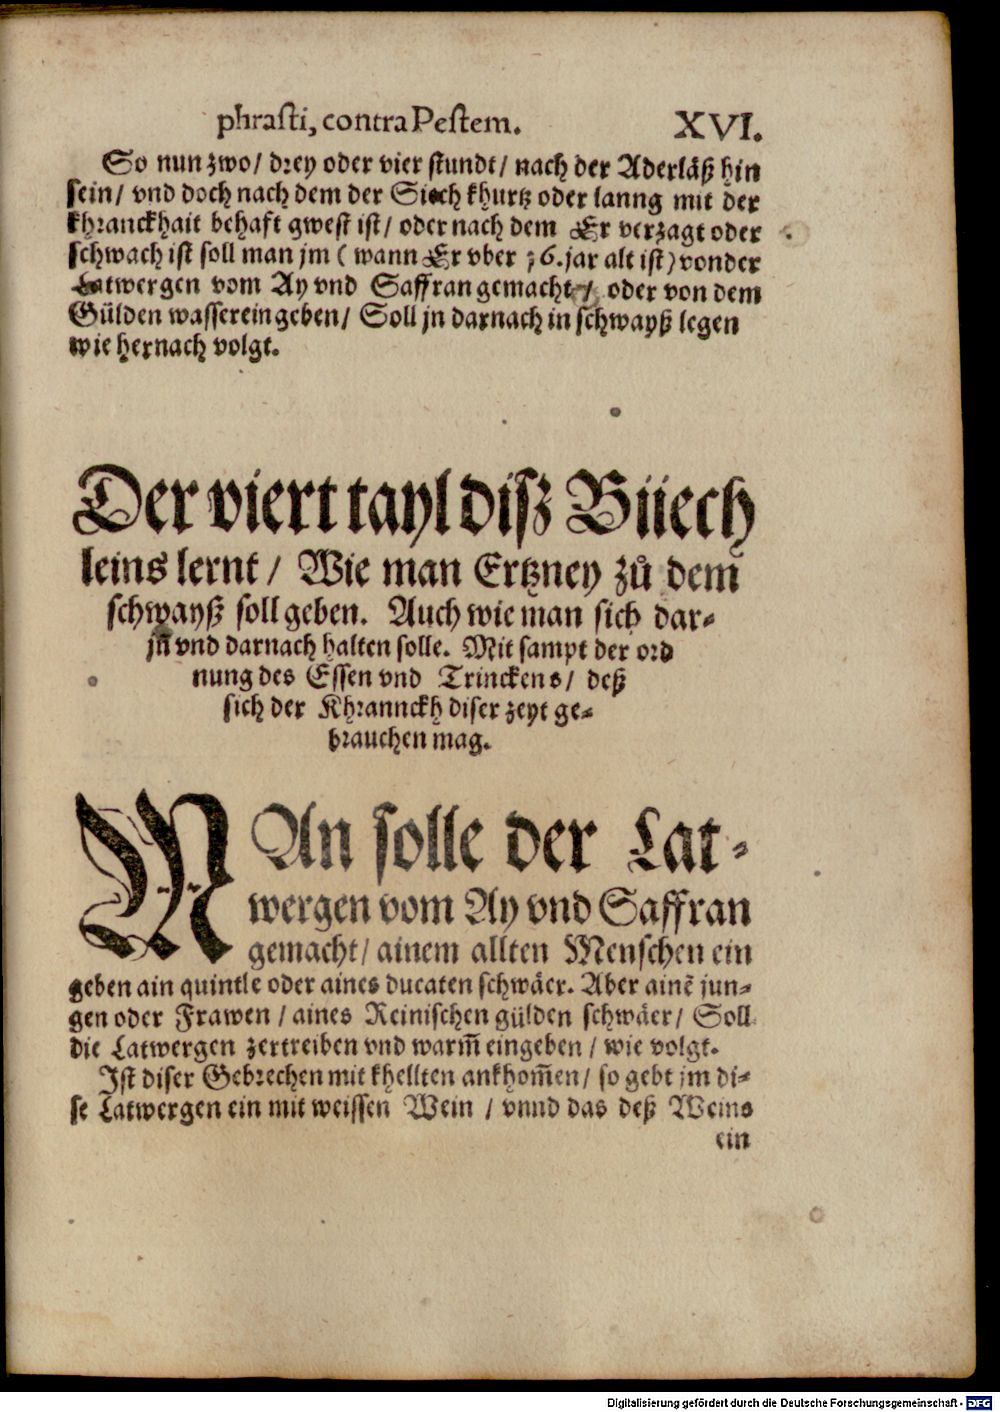 phrasti, contra Pestem. XVI.
So nun zwo/ drey oder vier stundt/ nach der Aderläß hin
sein/ vnd doch nach dem der Siech khurtz oder lanng mit der
khranckhait behaft gwest ist/ oder nach dem Er verzagt oder
schwach ist soll man jm ( wann Er vber 36. jar alt ist) von der
Latwergen vom Ay vnd Saffran gemacht / oder von dem
Gülden wasser eingeben/ Soll jn darnach in schwayß legen
wie hernach volgt.
Der viert tayl disz Büech
leins lernt / Wie man Ertzney zů dem
schwayß soll geben. Auch wie man sich dar-
jn̄ vnd darnach halten solle. Mit sampt der ord
nung des Essen vnd Trinckens/ deß
sich der Khrannckh diser zeyt ge-
brauchen mag.
MAn solle der Lat-
wergen vom Ay vnd Saffran
gemacht/ ainem allten Menschen ein
geben ain quintle oder aines ducaten schwäer. Aber ainē jun-
gen oder Frawen / aines Reinischen gülden schwäer/ Soll
die Latwergen zertreiben vnd warm̄ eingeben / wie volgt.
Ist diser Gebrechen mit khellten ankhom̄en/ so gebt jm di-
se Latwergen ein mit weissen Wein / vnnd das deß Weins
ein
Digitalisierung gefördert durch die Deutsche Forschungsgemeinschaft - DFG